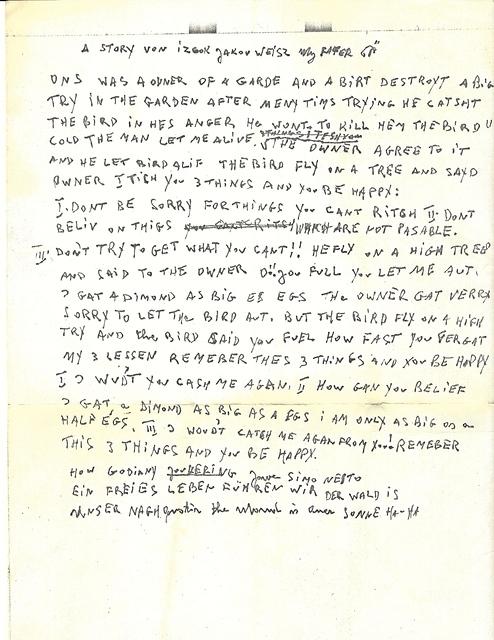 A STORY VON IZEOK JAKOV WEISZ My FATER
ONS WAS A OWNER OF A GARDE AND A BIRT DESTROYT A BIG
TRY IN THE GARDEN AFTER MENY TIMS TRYING HE CATSHT
THE BIRD IN HES ANGER He WONTS TO KILL HEM THE BIRD
COLD THE MAN LET ME ALIVE THE OWNER AGREE TO IT
AND HE LET BIRD ALIF THE BIRD FLY ON A TREE AND SAYD
OWNER I TISH YOU 3 THINGS AND YOU BE HAPPY:
I. DONT BE SORRY FOR THINGS YOU CANT RITSH II. DONT
BELIV ON THIGS WHICH ARE NOT PASABLE.
III. DON'T TRY TO GET WHAT YOU CANT!! HE FLY ON A HIGH TREE
AND SAID TO THE OWNER you FULL you LET ME AUT.
I GAT A DIMOND AS BIG ES EGS The OWNER GAT VERRY
SORRY TO LET THE BIRD AUT. BUT THE BIRD FLY ON A HIGH
TRY AND the BIRD SAID YOU FUEL HOW FAST YOU FERGAT
MY 3 LESSEN REMEBER THES 3 THINGS AND YOU BE HAPPY
I YOU CASH ME AGAIN. II HOW CAN YOU BELIEF
I GAT a DIMOND AS BIG AS A EGS i AM ONLY AS BIG as a
HALF EGS. III I WOUDT CATCH ME AGAN FROM REMEBER
THIS 3 THINGS AND YOU BE HAPPY.
HOW GODIANY SIMO NESTO
EIN FREIES LEBEN FÜHREN WIR DER WALD IS
UNSER NAGHQUATIR the SONNE HA-HA